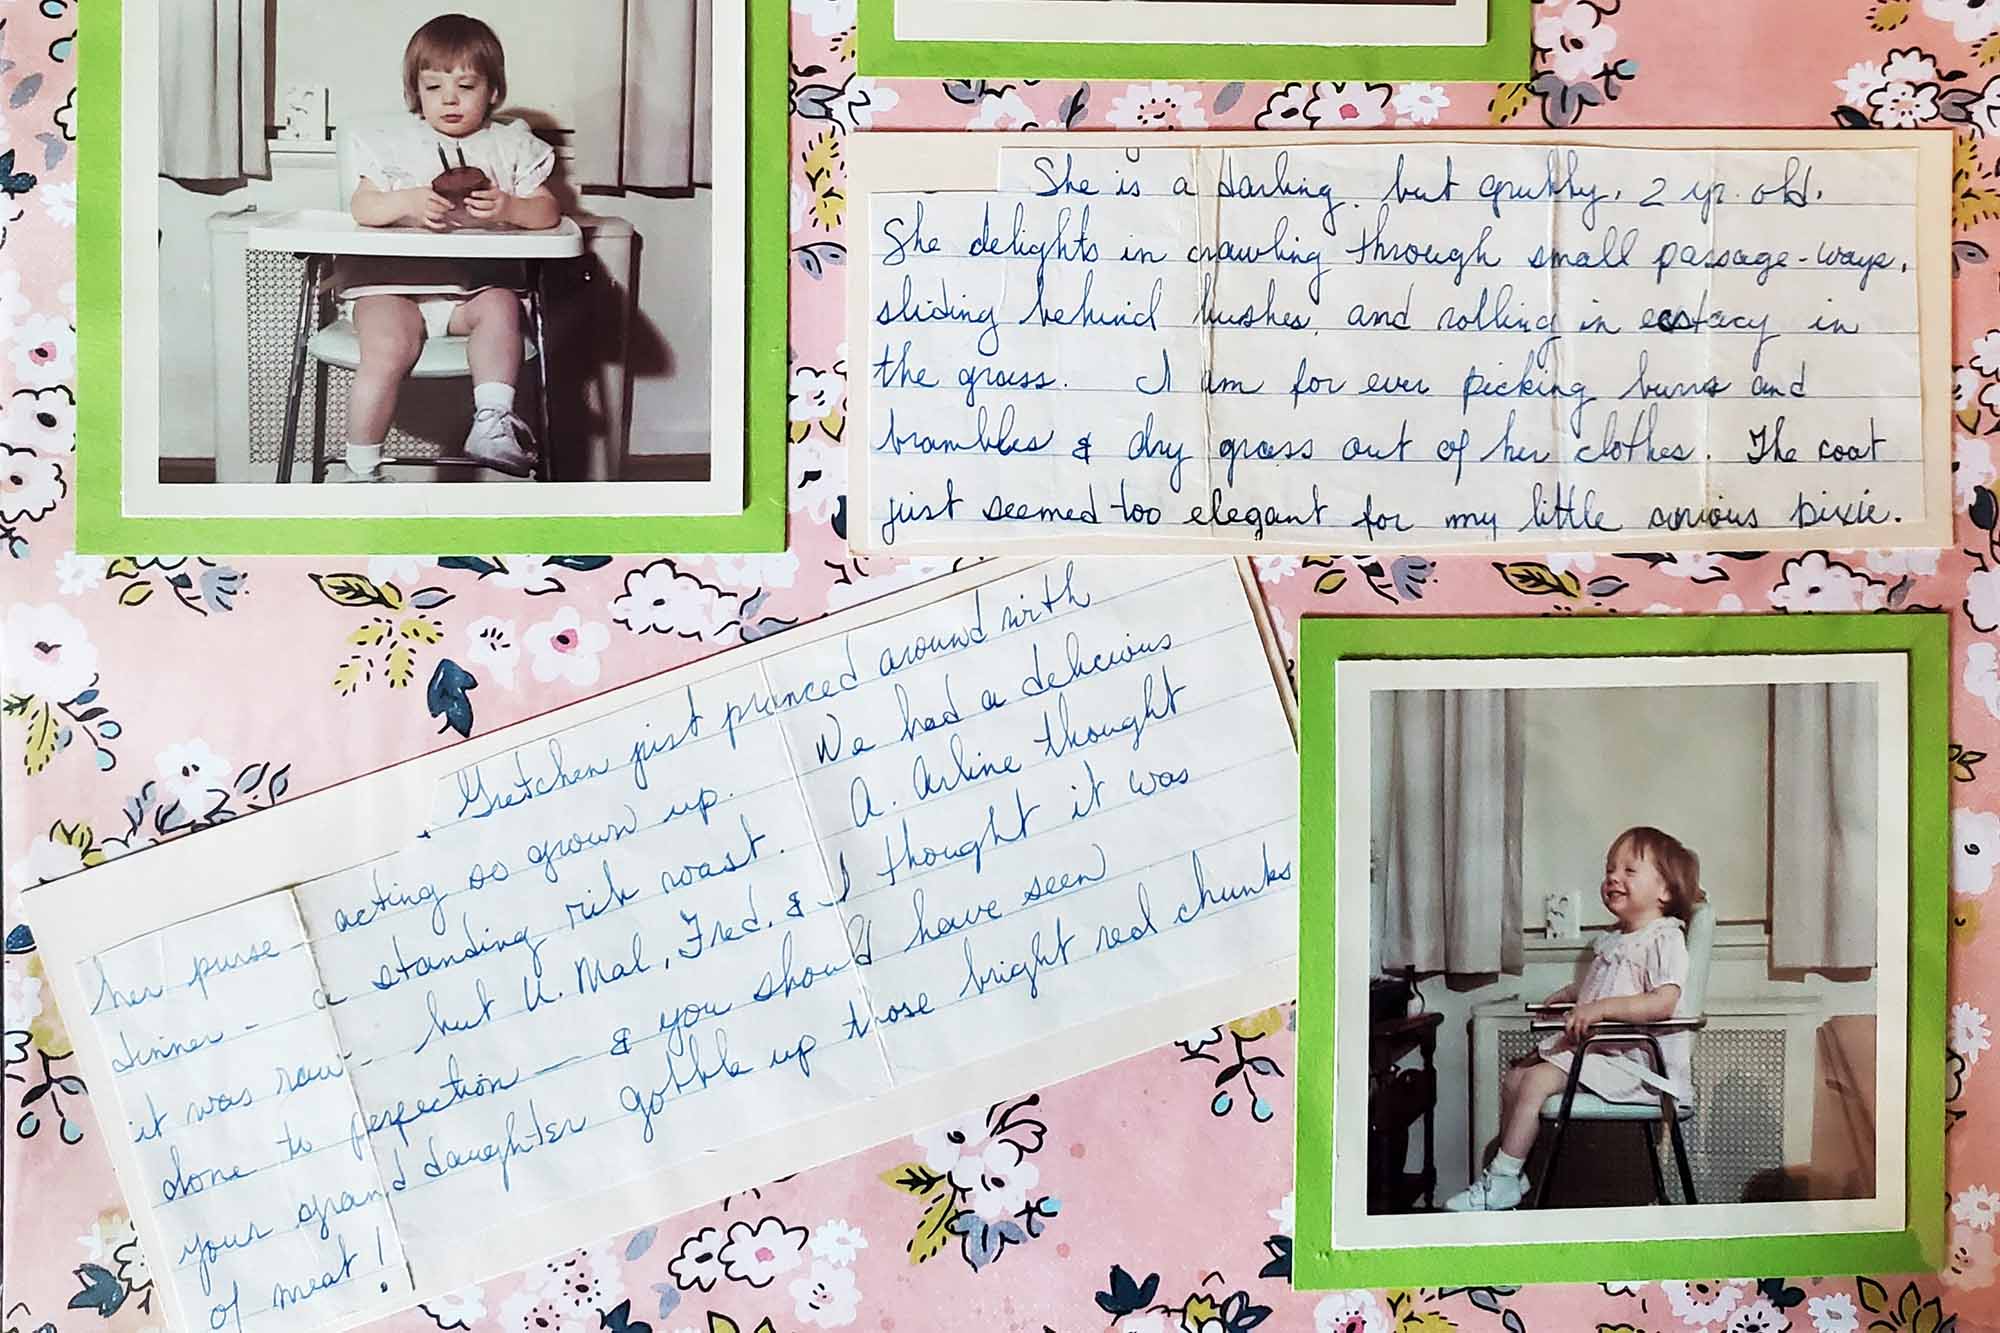 She is a darling, but grubby, 2 yr. old.
She delights in crawling through small passage-ways,
sliding behind bushes, and rolling in ecstacy in
the grass. I am for ever picking burrs and
brambles & dry grass out of her clothes. The coat
just seemed too elegant for my little curious pixie.
Gretchen just pranced around with
her purse - acting so grown up. We had a delicious
dinner - a standing rib roast. A. Arline thought
it was raw - but U. Mal, Fred, & I thought it was
done to perfection - & you should have seen
your grand daughter gobble up those bright red chunks
of meat!